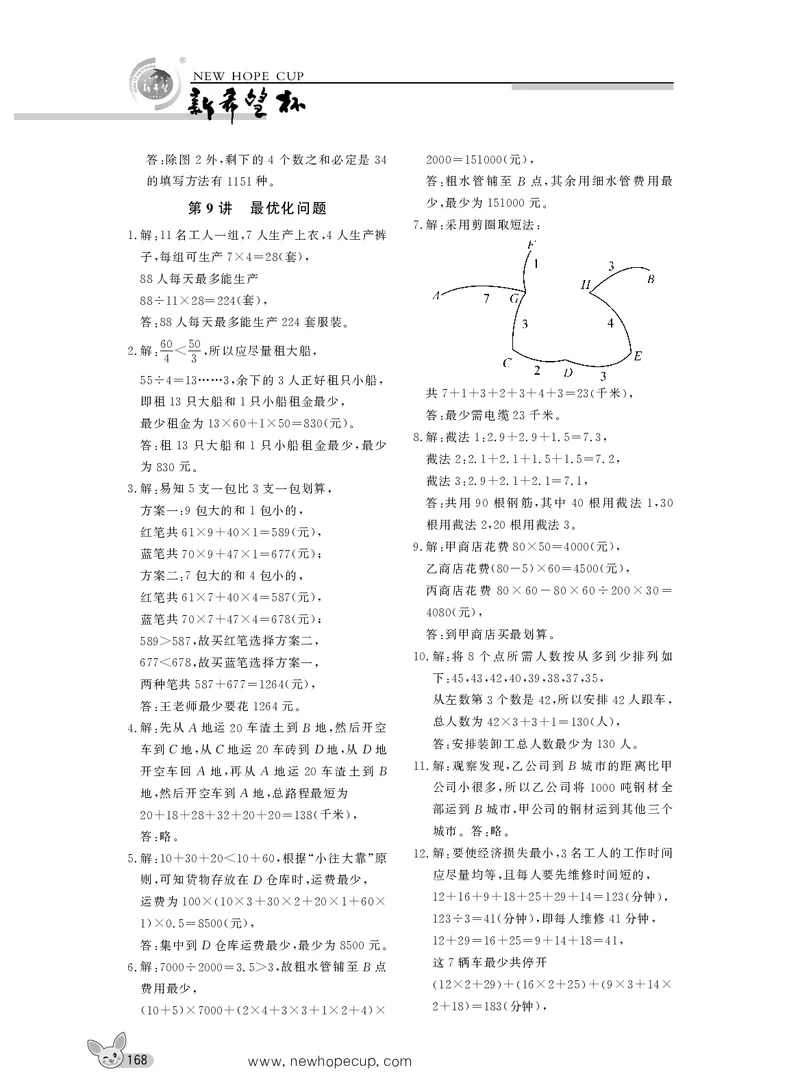 NEW HOPE CUP
新希望杯
答:除图 2 外,剩下的 4 个数之和必定是 34
的填写方法有 1151 种。
第 9 讲 最优化问题
1.解:11 名工人一组,7 人生产上衣,4 人生产裤
子,每组可生产 7×4=28(套),
88 人每天最多能生产
88÷11×28=224(套),
答:88 人每天最多能生产 224 套服装。
2.解:60/4<50/3,所以应尽量租大船,
55÷4=13……3,余下的 3 人正好租只小船,
即租 13 只大船和 1 只小船租金最少,
最少租金为 13×60+1×50=830(元)。
答:租 13 只大船和 1 只小船租金最少,最少
为 830 元。
3.解:易知 5 支一包比 3 支一包划算,
方案一:9 包大的和 1 包小的,
红笔共 61×9+40×1=589(元),
蓝笔共 70×9+47×1=677(元);
方案二:7 包大的和 4 包小的,
红笔共 61×7+40×4=587(元),
蓝笔共 70×7+47×4=678(元);
589>587,故买红笔选择方案二,
677<678,故买蓝笔选择方案一,
两种笔共 587+677=1264(元),
答:王老师最少要花 1264 元。
4.解:先从 A 地运 20 车渣土到 B 地,然后开空
车到 C 地,从 C 地运 20 车砖到 D 地,从 D 地
开空车回 A 地,再从 A 地运 20 车渣土到 B
地,然后开空车到 A 地,总路程最短为
20+18+28+32+20+20=138(千米),
答:略。
5.解:10+30+20<10+60,根据“小往大靠”原
则,可知货物存放在 D 仓库时,运费最少,
运费为 100×(10×3+30×2+20×1+60×
1)×0.5=8500(元),
答:集中到 D 仓库运费最少,最少为 8500 元。
6.解:7000÷2000=3.5>3,故粗水管铺至 B 点
费用最少,
(10+5)×7000+(2×4+3×3+1×2+4)×
2000=151000(元),
答:粗水管铺至 B 点,其余用细水管费用最
少,最少为 151000 元。
7.解:采用剪圈取短法:
F
1
3
B
H
A
7
G
3
4
C
2
D
3
E
共 7+1+3+2+3+4+3=23(千米),
答:最少需电缆 23 千米。
8.解:截法 1:2.9+2.9+1.5=7.3,
截法 2:2.1+2.1+1.5+1.5=7.2,
截法 3:2.9+2.1+2.1=7.1,
答:共用 90 根钢筋,其中 40 根用截法 1,30
根用截法 2,20 根用截法 3。
9.解:甲商店花费 80×50=4000(元),
乙商店花费(80-5)×60=4500(元),
丙商店花费 80×60-80×60÷200×30=
4080(元),
答:到甲商店买最划算。
10.解:将 8 个点所需人数按从多到少排列如
下:45,43,42,40,39,38,37,35,
从左数第 3 个数是 42,所以安排 42 人跟车,
总人数为 42×3+3+1=130(人),
答:安排装卸工总人数最少为 130 人。
11.解:观察发现,乙公司到 B 城市的距离比甲
公司小很多,所以乙公司将 1000 吨钢材全
部运到 B 城市,甲公司的钢材运到其他三个
城市。答:略。
12.解:要使经济损失最小,3 名工人的工作时间
应尽量均等,且每人要先维修时间短的,
12+16+9+18+25+29+14=123(分钟),
123÷3=41(分钟),即每人维修 41 分钟,
12+29=16+25=9+14+18=41,
这 7 辆车最少共停开
(12×2+29)+(16×2+25)+(9×3+14×
2+18)=183(分钟),
168
www.newhopecup.com